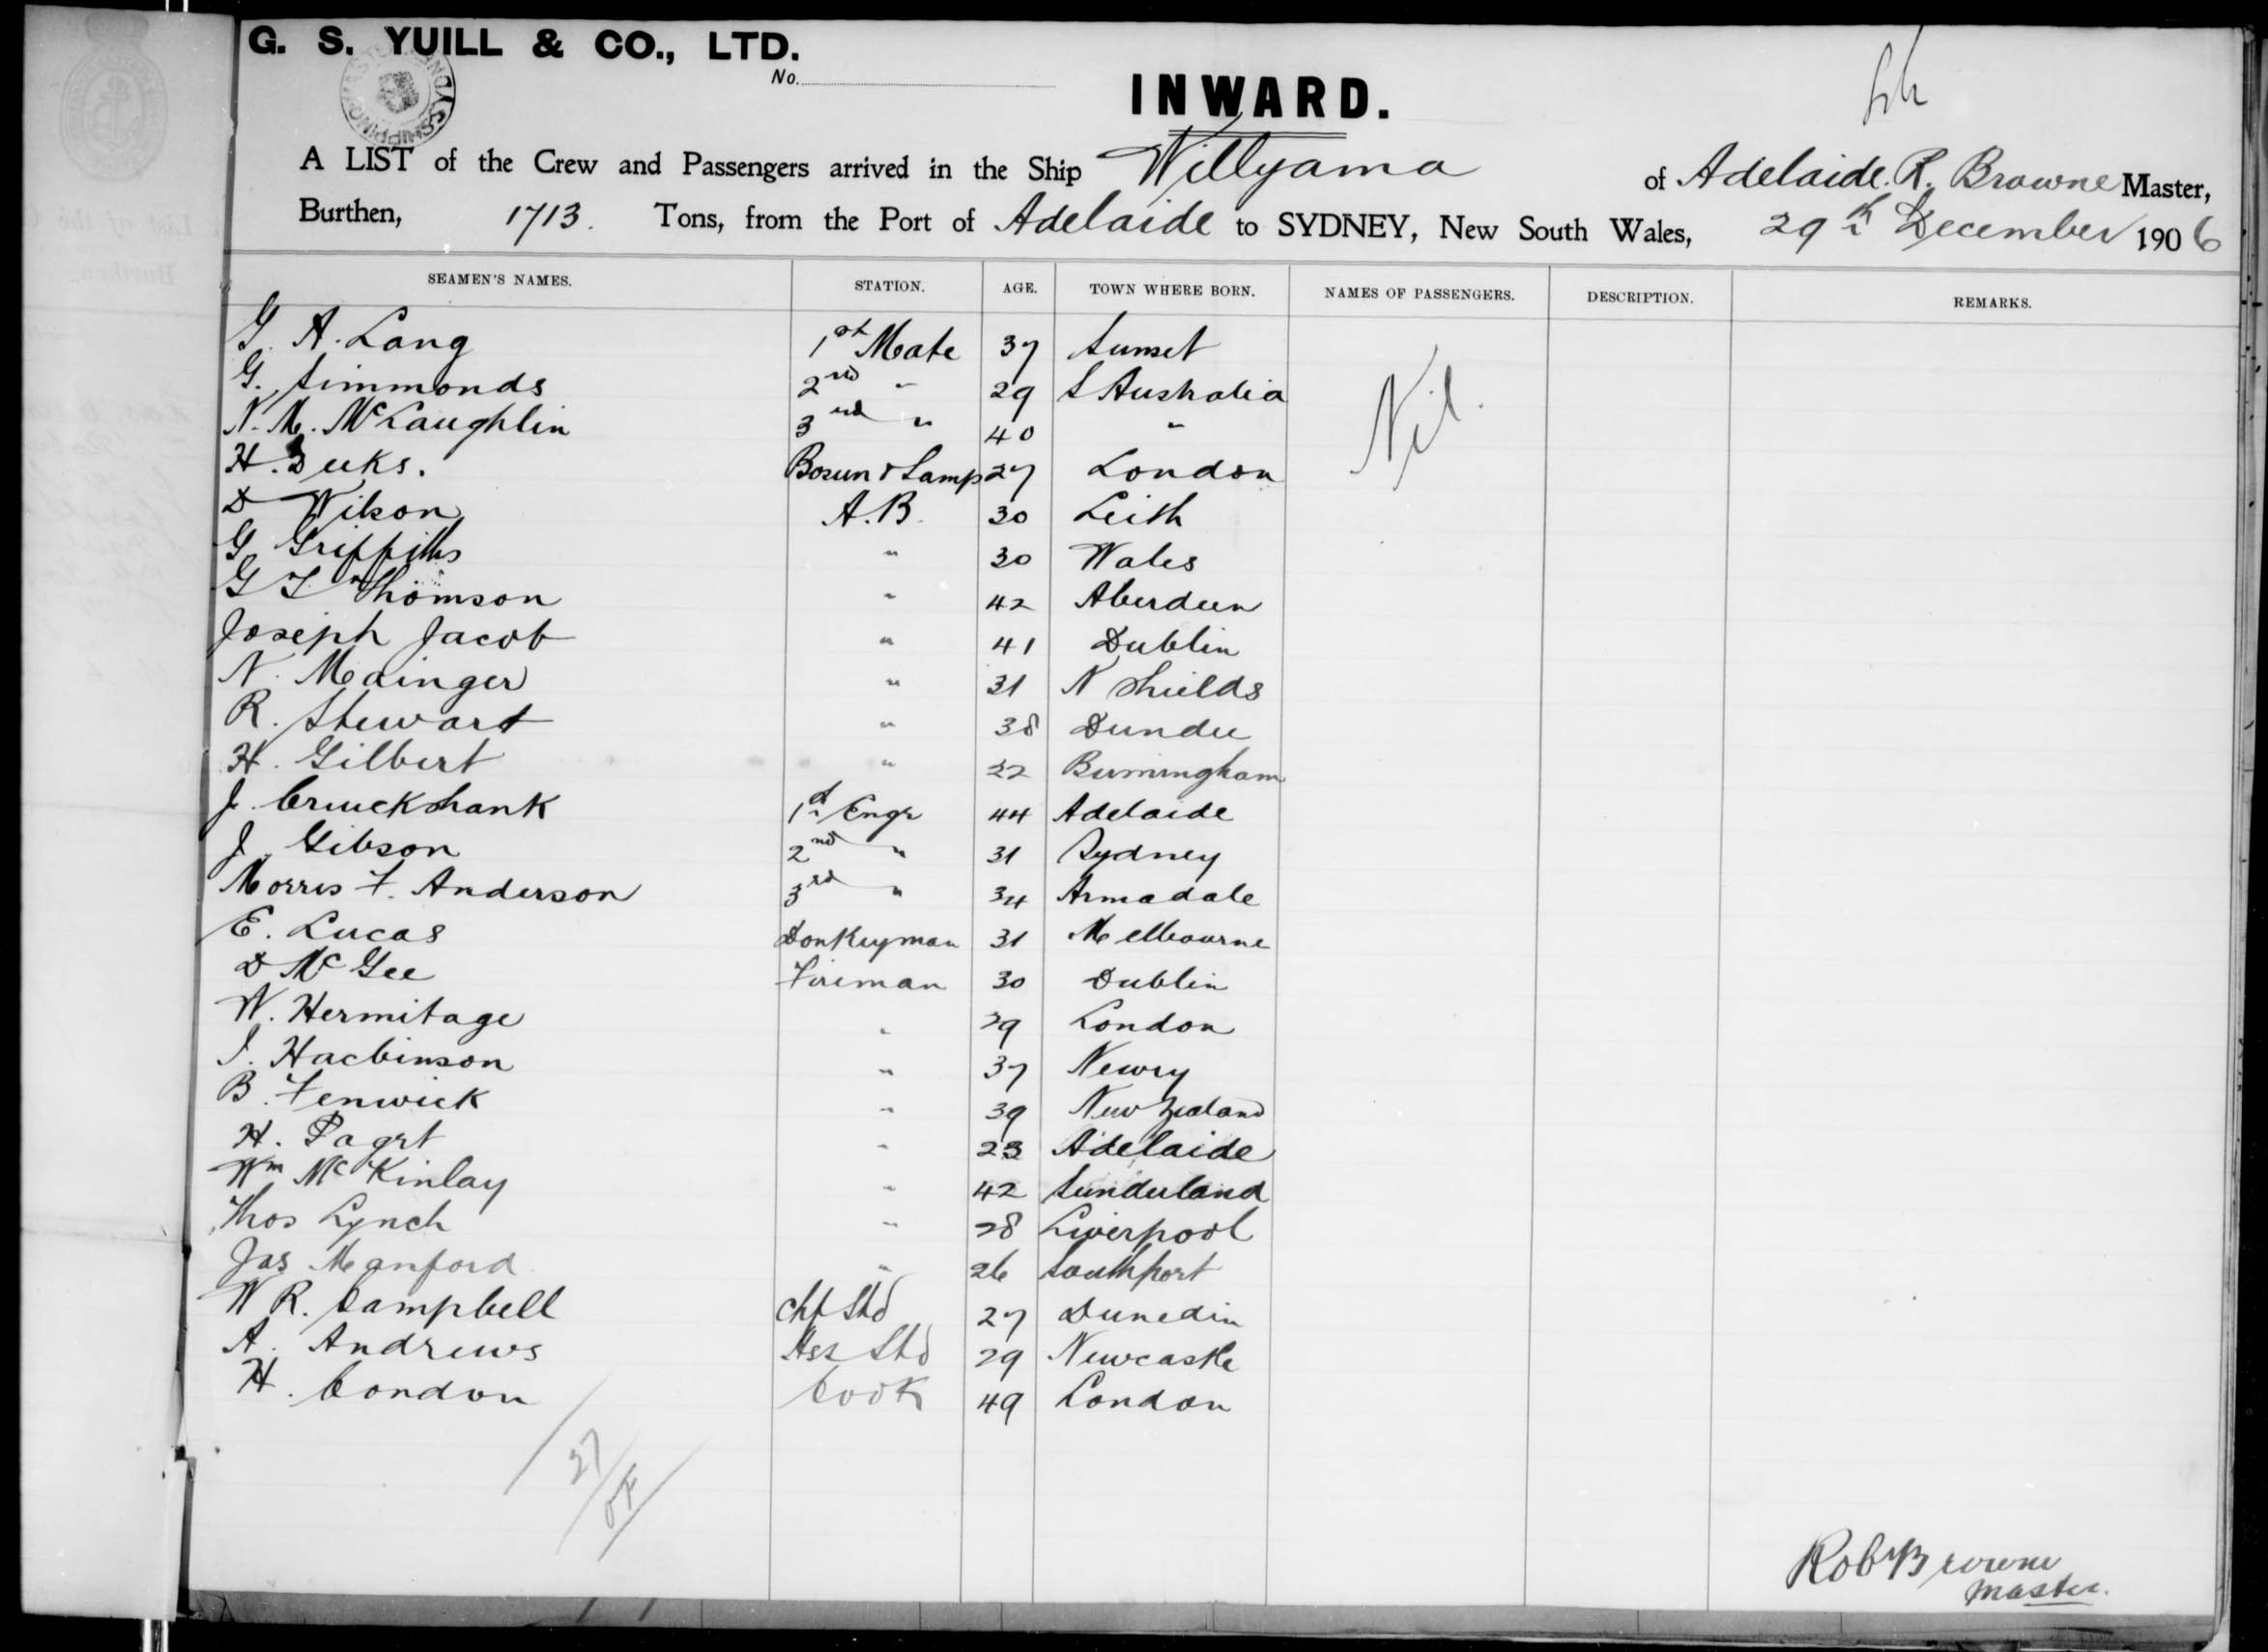 G. S. YUILL & CO., LTD.
No.
INWARD.
A LIST of the Crew and Passengers arrived in the Ship Willyama of Adelaide. R. Browne Master,
Burthen, 1713. Tons, from the Port of Adelaide to SYDNEY, New South Wales, 29th December 1906
SEAMEN'S NAMES. STATION. AGE. TOWN WHERE BORN. NAMES OF PASSENGERS. DESCRIPTION. REMARKS.
G. A. Lang 1st Mate 37 Sunset Nil.
G. Simmonds 2nd " 29 S Australia
N. M. McLaughlin 3rd " 40 "
H. Deeks. Bosun & Lamp 27 London
D Wilson A.B. 30 Leith
G Griffiths " 30 Wales
G T Thomson " 42 Aberdeen
Joseph Jacob " 41 Dublin
N. Mainger " 31 N Shields
R. Stewart " 38 Dundee
H. Gilbert " 22 Birmingham
J. Cruickshank 1st Engr 44 Adelaide
J. Gibson 2nd " 31 Sydney
Morris F. Anderson 3rd " 34 Armadale
E. Lucas Donkeyman 31 Melbourne
D McGee Fireman 30 Dublin
W. Hermitage " 29 London
J. Hacbinson " 37 Newry
B. Fenwick " 39 New Zealand
H. Paget " 23 Adelaide
Wm McKinlay " 42 Sunderland
Thos Lynch " 28 Liverpool
Jas Manford " 26 Southport
W R. Campbell Chf Std 27 Dunedin
A. Andrews Ass Std 29 Newcastle
H. Condon Cook 49 London
27
Robt Browne
Master.